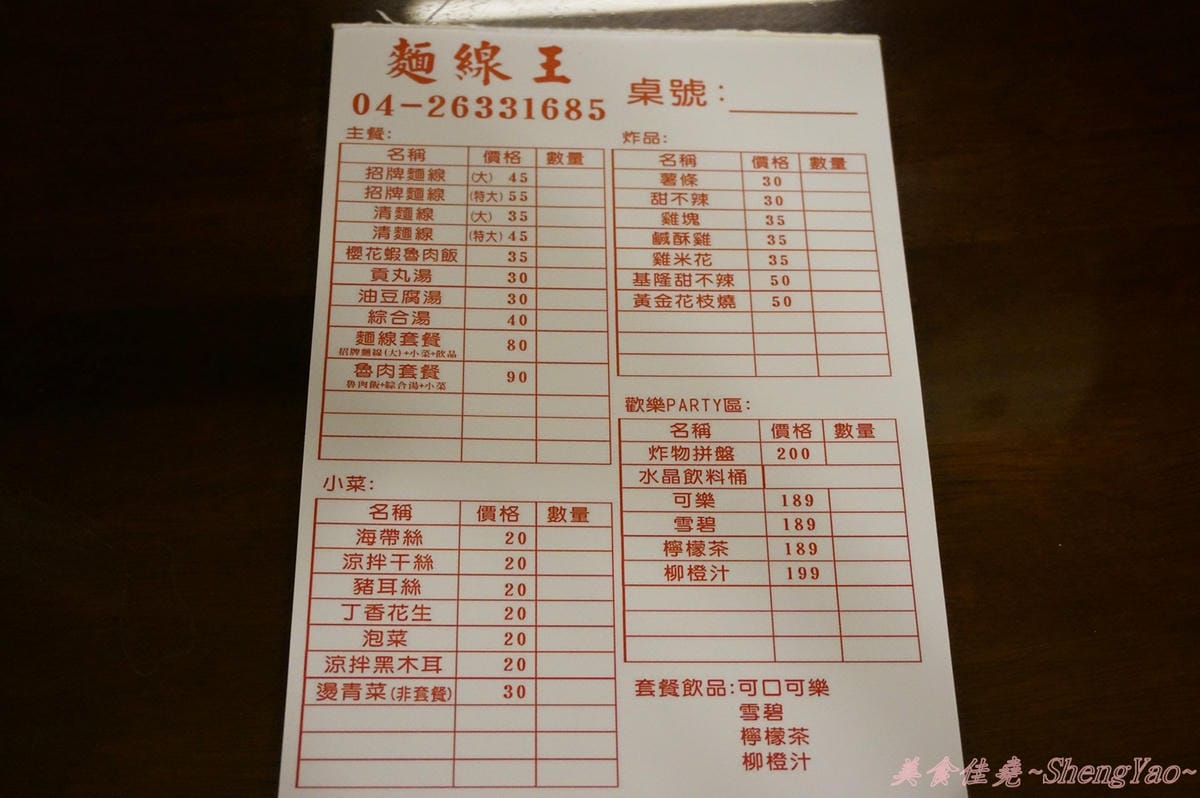 麵線王
04-26331685
桌號:
主餐:
名稱 價格 數量
招牌麵線 (大) 45
招牌麵線 (特大) 55
清麵線 (大) 35
清麵線 (特大) 45
櫻花蝦魯肉飯 35
貢丸湯 30
油豆腐湯 30
綜合湯 40
麵線套餐 80
招牌麵線(大)+小菜+飲品
魯肉套餐 90
魯肉飯+綜合湯+小菜
小菜:
名稱 價格 數量
海帶絲 20
涼拌干絲 20
豬耳絲 20
丁香花生 20
泡菜 20
涼拌黑木耳 20
燙青菜(非套餐) 30
炸品:
名稱 價格 數量
薯條 30
甜不辣 30
雞塊 35
鹹酥雞 35
雞米花 35
基隆甜不辣 50
黃金花枝燒 50
歡樂PARTY區:
名稱 價格 數量
炸物拼盤 200
水晶飲料桶
可樂 189
雪碧 189
檸檬茶 189
柳橙汁 199
套餐飲品:可口可樂
雪碧
檸檬茶
柳橙汁
美食佳堯~ShengYao~